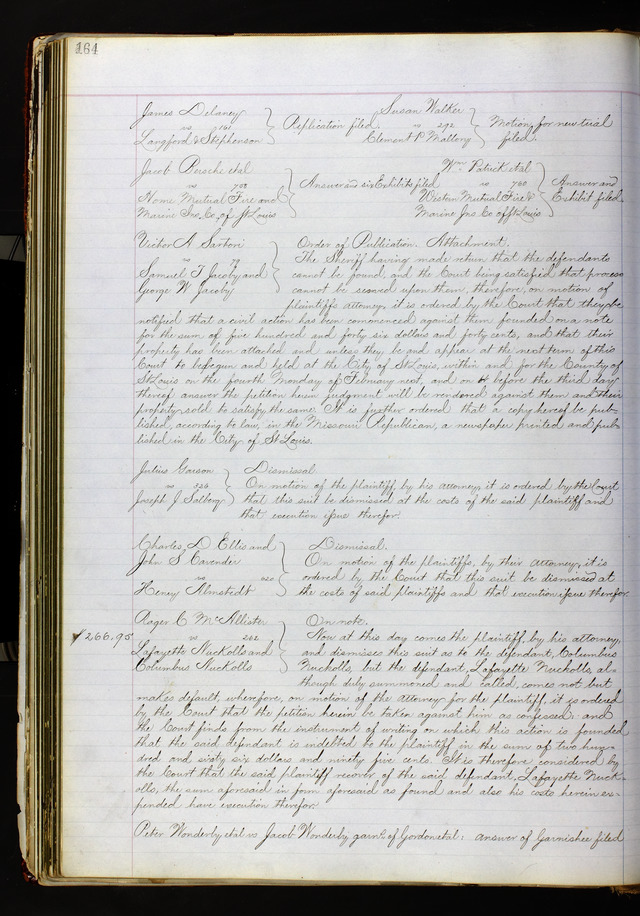 164
James Delaney
vs 161
Langford & Stephenson
Replication filed.
Susan Walker
vs 292
Clement P. Mallory
Motion, for new trial
filed.
Jacob Persche etal
vs 758
Home Mutual Fire and
Marine Ins. Co. of St Louis
Answer and six Exhibits filed
Wm. Patrick etal
vs 760
Western Mutual Fire &
Marine Ins. Co of St Louis
Answer and
Exhibit filed.
Victor A Sartori
vs 79
Samuel T Jacoby and
George W Jacoby
Order of Publication. Attachment.
The Sheriff having made return that the defendants
cannot be found, and the Court being satisfied that process
cannot be served upon them, therefore, on motion of
plaintiffs attorney, it is ordered by the Court that they be
notified that a civil action has been commenced against them founded on a note
for the sum of five hundred and forty six dollars and forty cents, and that their
property has been attached and unless they be and appear at the next term of this
Court to be begun and held at the City of St Louis, within and for the County of
St Louis on the fourth Monday of February next, and on or before the third day
thereof answer the petition herein judgment will be rendered against them and their
property sold to satisfy the same. It is further ordered that a copy hereof be pub-
lished, according to law, in the Missouri Republican, a newspaper printed and pub-
lished in the City of St Louis.
Julius Garson
vs
Joseph J. Salberg
Dismissal
On motion of the plaintiff, by his attorney, it is ordered by the Court
that this suit be dismissed at the costs of the said plaintiff and
that execution issue therefor.
Charles, D Ellis and
John S Cavender
vs
Henry Almstedt
Dismissal.
On motion of the plaintiffs, by their attorney, it is
ordered by the Court that this suit be dismissed at
the costs of said plaintiffs and that execution issue therefor.
$266.95
Roger C McAllister
vs 262
Lafayette Nuckolls and
Columbus Nuckolls
On note.
Now at this day comes the plaintiff, by his attorney,
and dismisses this suit as to the defendant, Columbus
Nuckolls, but the defendant, Lafayette Nuckolls al-
though duly summoned and called, comes not but
makes default, wherefore, on motion of the attorney for the plaintiff, it is ordered
by the Court that the petition herein be taken against him as confessed: and
the Court finds from the instrument of writing on which this action is founded
that the said defendant is indebted to the plaintiff in the sum of two hun-
dred and sixty six dollars and ninety five cents. It is therefore considered by
the Court that the said plaintiff recover of the said defendant, Lafayette Nuck-
olls, the sum aforesaid in form aforesaid as found and also his costs herein ex-
pended have execution therefor.
Peter Wonderly etal vs Jacob Wonderly garn. of Gordon etal: answer of Garnishee filed